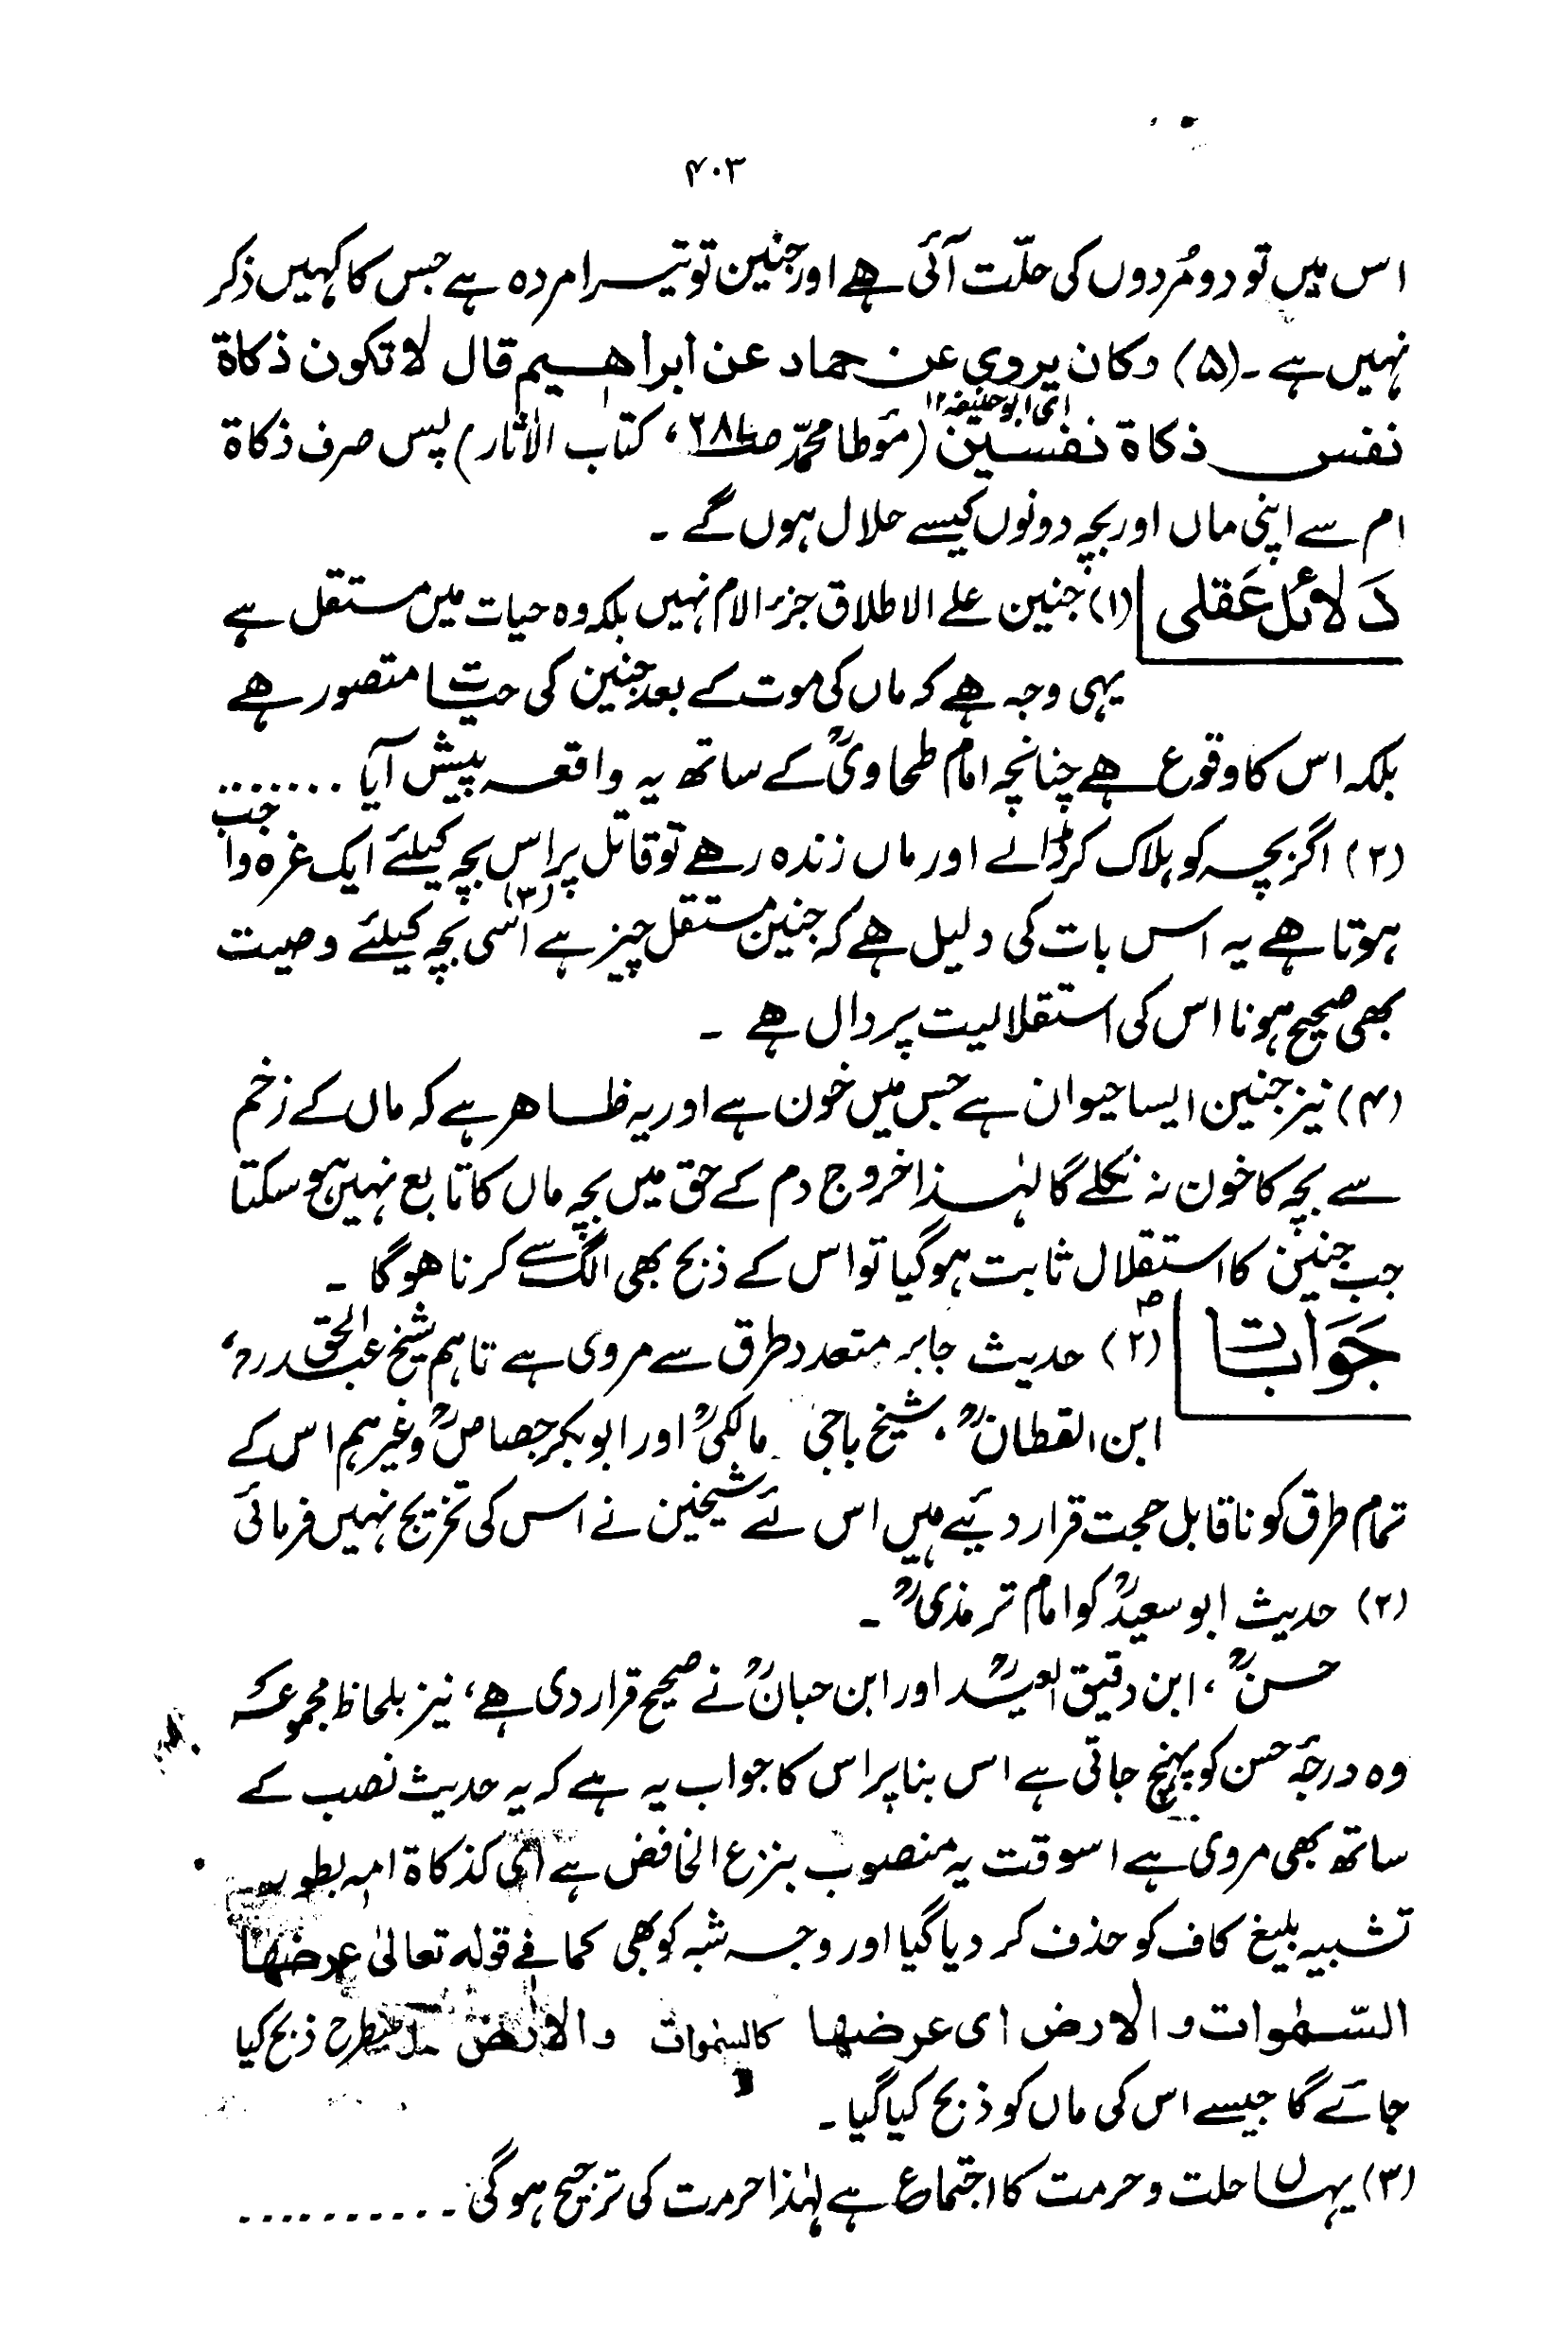 ۴۰۳
اس میں تو دو مُردوں کی حلّت آئی ہے اور جنین تو تیسرا مردہ ہے جس کا کہیں ذکر
نہیں ہے ۔ (۵) وکان یروی عن حماد عن ابراھیم قال لا تکون ذکاة
ای ابو حنیفہ ۱۲
نفس ذکاة نفسین (مؤطا محمدؒ ص۲۸۶، کتاب الآثار) پس صرف ذکاة
ام سے اپنی ماں اور بچہ دونوں کیسے حلال ہوں گے ۔
دَلائل عَقلی (۱) جنین علے الاطلاق جزء الام نہیں بلکہ وہ حیات میں مستقل ہے
یہی وجہ ہے کہ ماں کی موت کے بعد جنین کی حیات متصور ہے
بلکہ اس کا وقوع ہے چنانچہ امام طحاویؒ کے ساتھ یہ واقعہ پیش آیا .......
(۲) اگر بچہ کو ہلاک کر ڈالے اور ماں زندہ رہے تو قاتل پر اس بچہ کیلئے ایک غرہ واجب
ہوتا ہے یہ اس بات کی دلیل ہے کہ جنین مستقل چیز ہے (۳) اسی بچہ کیلئے وصیت
بھی صحیح ہونا اس کی استقلالیت پر دال ہے ۔
(۴) نیز جنین ایسا حیوان ہے جس میں خون ہے اور یہ ظاہر ہے کہ ماں کے زخم
سے بچہ کا خون نہ نکلے گا لہٰذا خروج دم کے حق میں بچہ ماں کا تابع نہیں ہو سکتا
جب جنین کا استقلال ثابت ہو گیا تو اس کے ذبح بھی الگ سے کرنا ہوگا ۔
جَوَابات (۲) حدیث جابر متعدد طرق سے مروی ہے تاہم شیخ عبد الحق رحؒ،
ابن القطانؒ، شیخ باجی مالکیؒ اور ابوبکر جصاصؒ وغیرہم اس کے
تمام طرق کو ناقابل حجت قرار دیئے ہیں اس لئے شیخین نے اس کی تخریج نہیں فرمائی
(۲) حدیث ابو سعیدؓ کو امام ترمذیؒ ۔
حسنؒ، ابن دقیق العیدؒ اور ابن حبانؒ نے صحیح قرار دی ہے، نیز بلحاظ مجموعہ
وہ درجۂ حسن کو پہنچ جاتی ہے اس بنا پر اس کا جواب یہ ہے کہ یہ حدیث نصب کے
ساتھ بھی مروی ہے اسوقت یہ منصوب بنزع الخافض ہے ای کذکاة امہ بطور
تشبیہ بلیغ کاف کو حذف کر دیا گیا اور وجہ شبہ کو بھی کما فے قولہ تعالیٰ عرضھا
السّمٰوات والارض ای عرضھا کالسمٰوات والارض ذبح کیا
جائے گا جیسے اس کی ماں کو ذبح کیا گیا ۔
(۳) یہاں حلت و حرمت کا اجتماع ہے لہٰذا حرمت کی ترجیح ہوگی ۔ ..........